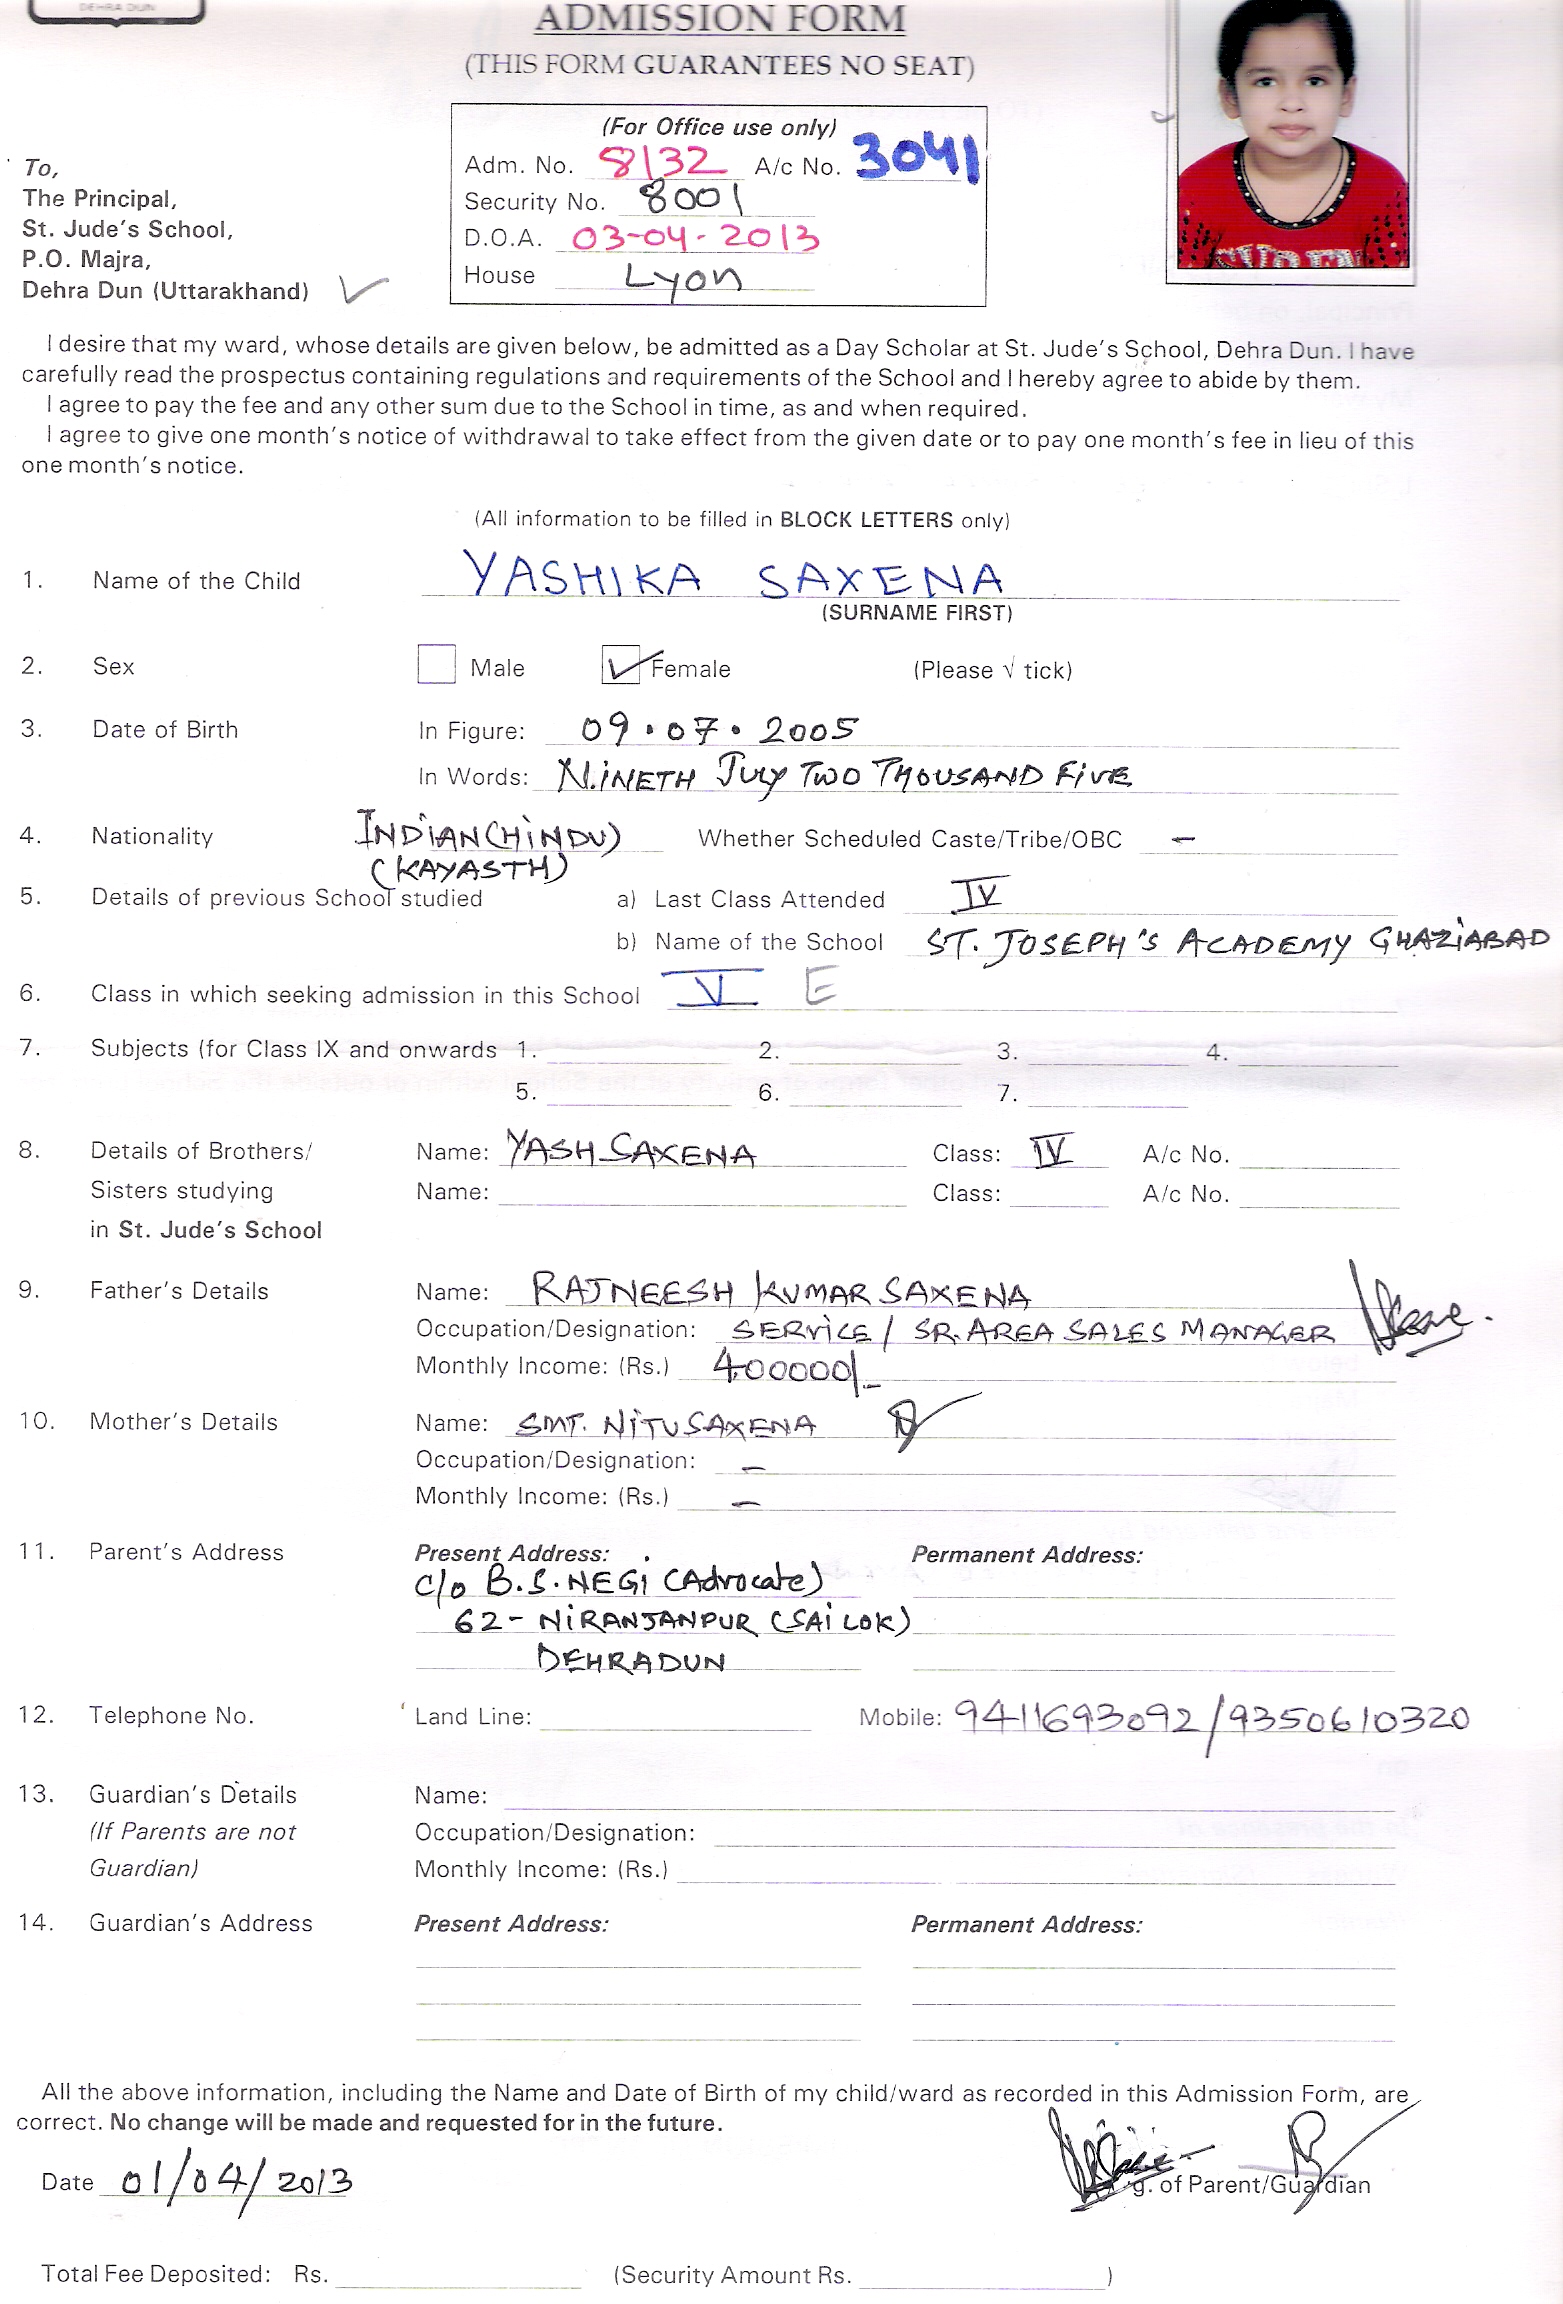 DEHRA DUN
ADMISSION FORM
(THIS FORM GUARANTEES NO SEAT)
(For Office use only)
Adm. No. 8132 A/c No. 3041
Security No. 8001
D.O.A. 03-04-2013
House Lyon
To,
The Principal,
St. Jude's School,
P.O. Majra,
Dehra Dun (Uttarakhand)
I desire that my ward, whose details are given below, be admitted as a Day Scholar at St. Jude's School, Dehra Dun. I have
carefully read the prospectus containing regulations and requirements of the School and I hereby agree to abide by them.
I agree to pay the fee and any other sum due to the School in time, as and when required.
I agree to give one month's notice of withdrawal to take effect from the given date or to pay one month's fee in lieu of this
one month's notice.
(All information to be filled in BLOCK LETTERS only)
1. Name of the Child YASHIKA SAXENA
(SURNAME FIRST)
2. Sex Male ✓ Female (Please √ tick)
3. Date of Birth In Figure: 09.07.2005
In Words: NINETH JULY TWO THOUSAND FIVE
4. Nationality INDIAN (HINDU) Whether Scheduled Caste/Tribe/OBC -
(KAYASTH)
5. Details of previous School studied a) Last Class Attended IV
b) Name of the School ST. JOSEPH'S ACADEMY GHAZIABAD
6. Class in which seeking admission in this School V E
7. Subjects (for Class IX and onwards 1. 2. 3. 4.
5. 6. 7.
8. Details of Brothers/ Name: YASH SAXENA Class: IV A/c No.
Sisters studying Name: Class: A/c No.
in St. Jude's School
9. Father's Details Name: RAJNEESH KUMAR SAXENA
Occupation/Designation: SERVICE / SR. AREA SALES MANAGER
Monthly Income: (Rs.) 400000/-
10. Mother's Details Name: SMT. NITU SAXENA
Occupation/Designation: -
Monthly Income: (Rs.) -
11. Parent's Address Present Address: Permanent Address:
C/o B.S. NEGI (Advocate)
62- NIRANJANPUR (SAI LOK)
DEHRADUN
12. Telephone No. Land Line: Mobile: 9411693092/9350610320
13. Guardian's Details Name:
(If Parents are not Occupation/Designation:
Guardian) Monthly Income: (Rs.)
14. Guardian's Address Present Address: Permanent Address:
All the above information, including the Name and Date of Birth of my child/ward as recorded in this Admission Form, are
correct. No change will be made and requested for in the future.
Date 01/04/2013 g. of Parent/Guardian
Total Fee Deposited: Rs. (Security Amount Rs. )